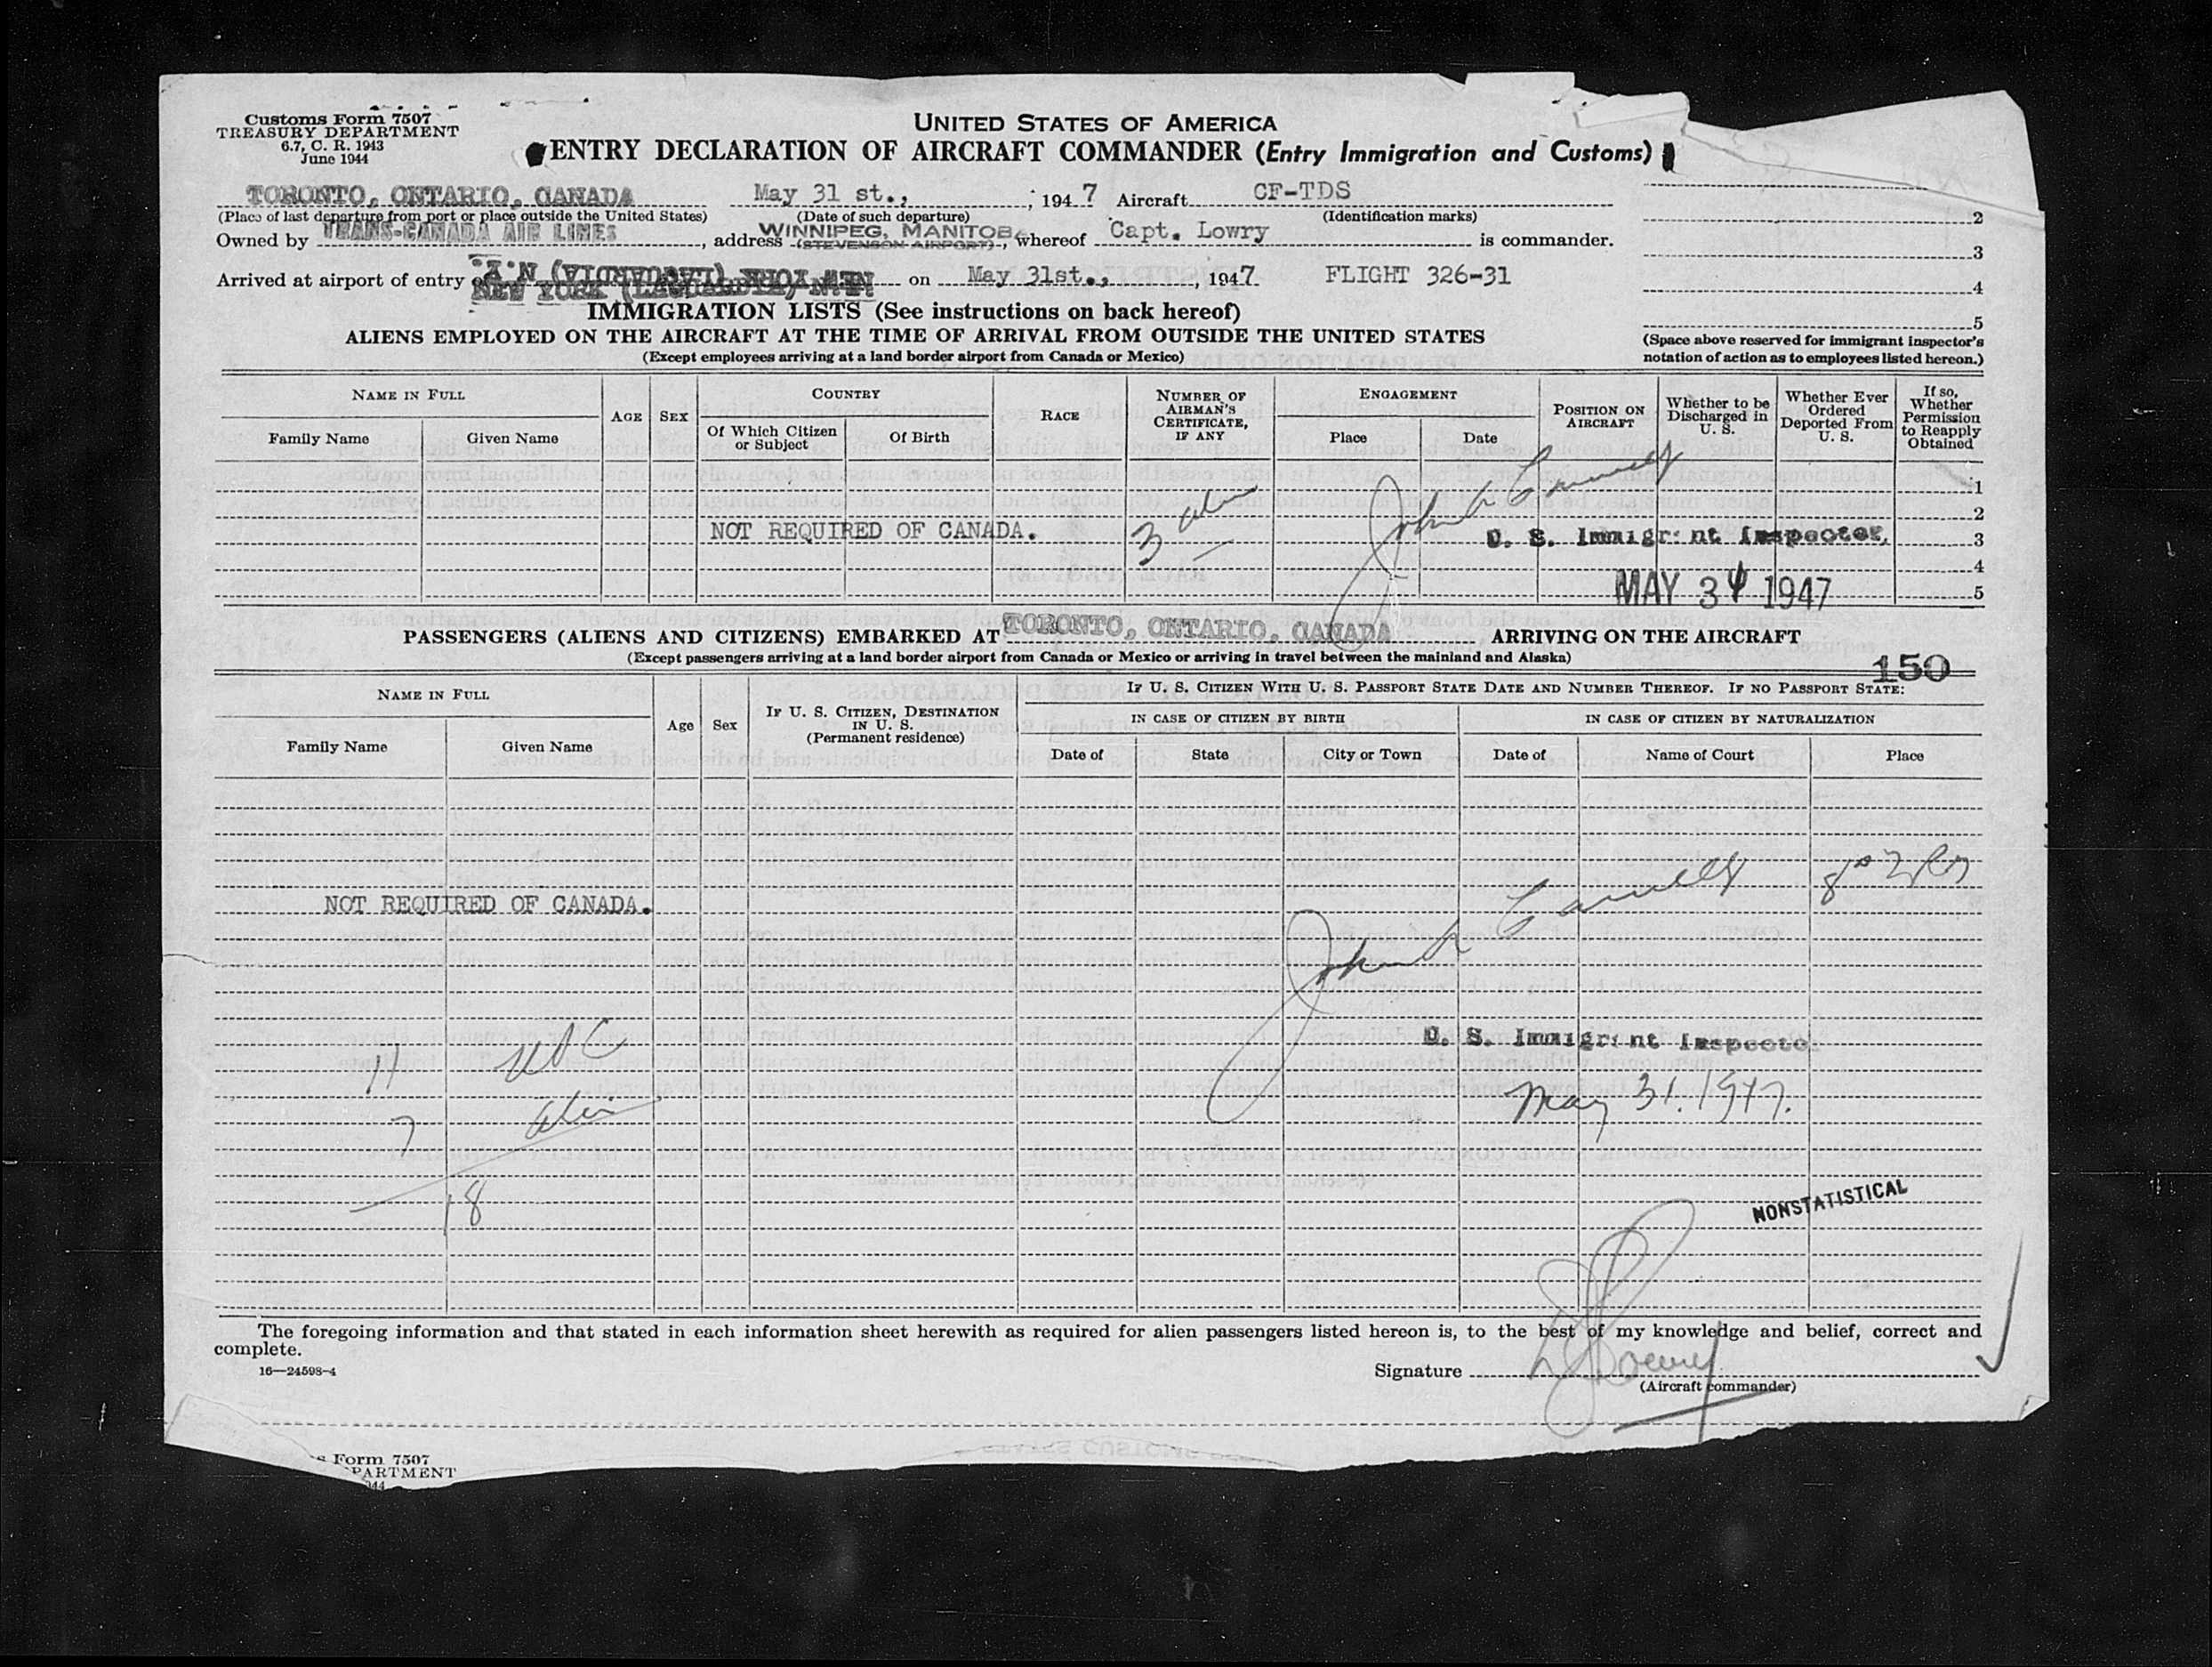 Customs Form 7507
TREASURY DEPARTMENT
6.7, C. R. 1943
June 1944
UNITED STATES OF AMERICA
ENTRY DECLARATION OF AIRCRAFT COMMANDER (Entry Immigration and Customs)
TORONTO, ONTARIO, CANADA May 31 st., ; 1947 Aircraft CF-TDS
(Place of last departure from port or place outside the United States) (Date of such departure) (Identification marks)
Owned by TRANS-CANADA AIR LINES, address WINNIPEG, MANITOBA (STEVENSON AIRPORT), whereof Capt. Lowry is commander.
Arrived at airport of entry of NEW YORK (LAGUARDIA) N.Y. on May 31st., , 1947 FLIGHT 326-31
NEW YORK (LAGUARDIA) N.Y.
2
3
4
5
(Space above reserved for immigrant inspector's
notation of action as to employees listed hereon.)
IMMIGRATION LISTS (See instructions on back hereof)
ALIENS EMPLOYED ON THE AIRCRAFT AT THE TIME OF ARRIVAL FROM OUTSIDE THE UNITED STATES
(Except employees arriving at a land border airport from Canada or Mexico)
NAME IN FULL
Family Name
Given Name
AGE
SEX
COUNTRY
Of Which Citizen
or Subject
Of Birth
RACE
NUMBER OF
AIRMAN'S
CERTIFICATE,
IF ANY
ENGAGEMENT
Place
Date
POSITION ON
AIRCRAFT
Whether to be
Discharged in
U. S.
Whether Ever
Ordered
Deported From
U. S.
If so,
Whether
Permission
to Reapply
Obtained
1
2
3
4
5
NOT REQUIRED OF CANADA.
3 alien
John
U. S. Immigrant Inspector.
MAY 31 1947
PASSENGERS (ALIENS AND CITIZENS) EMBARKED AT TORONTO, ONTARIO, CANADA ARRIVING ON THE AIRCRAFT
(Except passengers arriving at a land border airport from Canada or Mexico or arriving in travel between the mainland and Alaska)
150
NAME IN FULL
Family Name
Given Name
Age
Sex
IF U. S. CITIZEN, DESTINATION
IN U. S.
(Permanent residence)
IF U. S. CITIZEN WITH U. S. PASSPORT STATE DATE AND NUMBER THEREOF. IF NO PASSPORT STATE:
IN CASE OF CITIZEN BY BIRTH
Date of
State
City or Town
IN CASE OF CITIZEN BY NATURALIZATION
Date of
Name of Court
Place
NOT REQUIRED OF CANADA.
John
U. S. Immigrant Inspector
11 USC
May 31. 1947.
7 alien
18
NONSTATISTICAL
The foregoing information and that stated in each information sheet herewith as required for alien passengers listed hereon is, to the best of my knowledge and belief, correct and
complete.
16—24598-4
Signature Lowry
(Aircraft commander)
Form 7507
PARTMENT
944